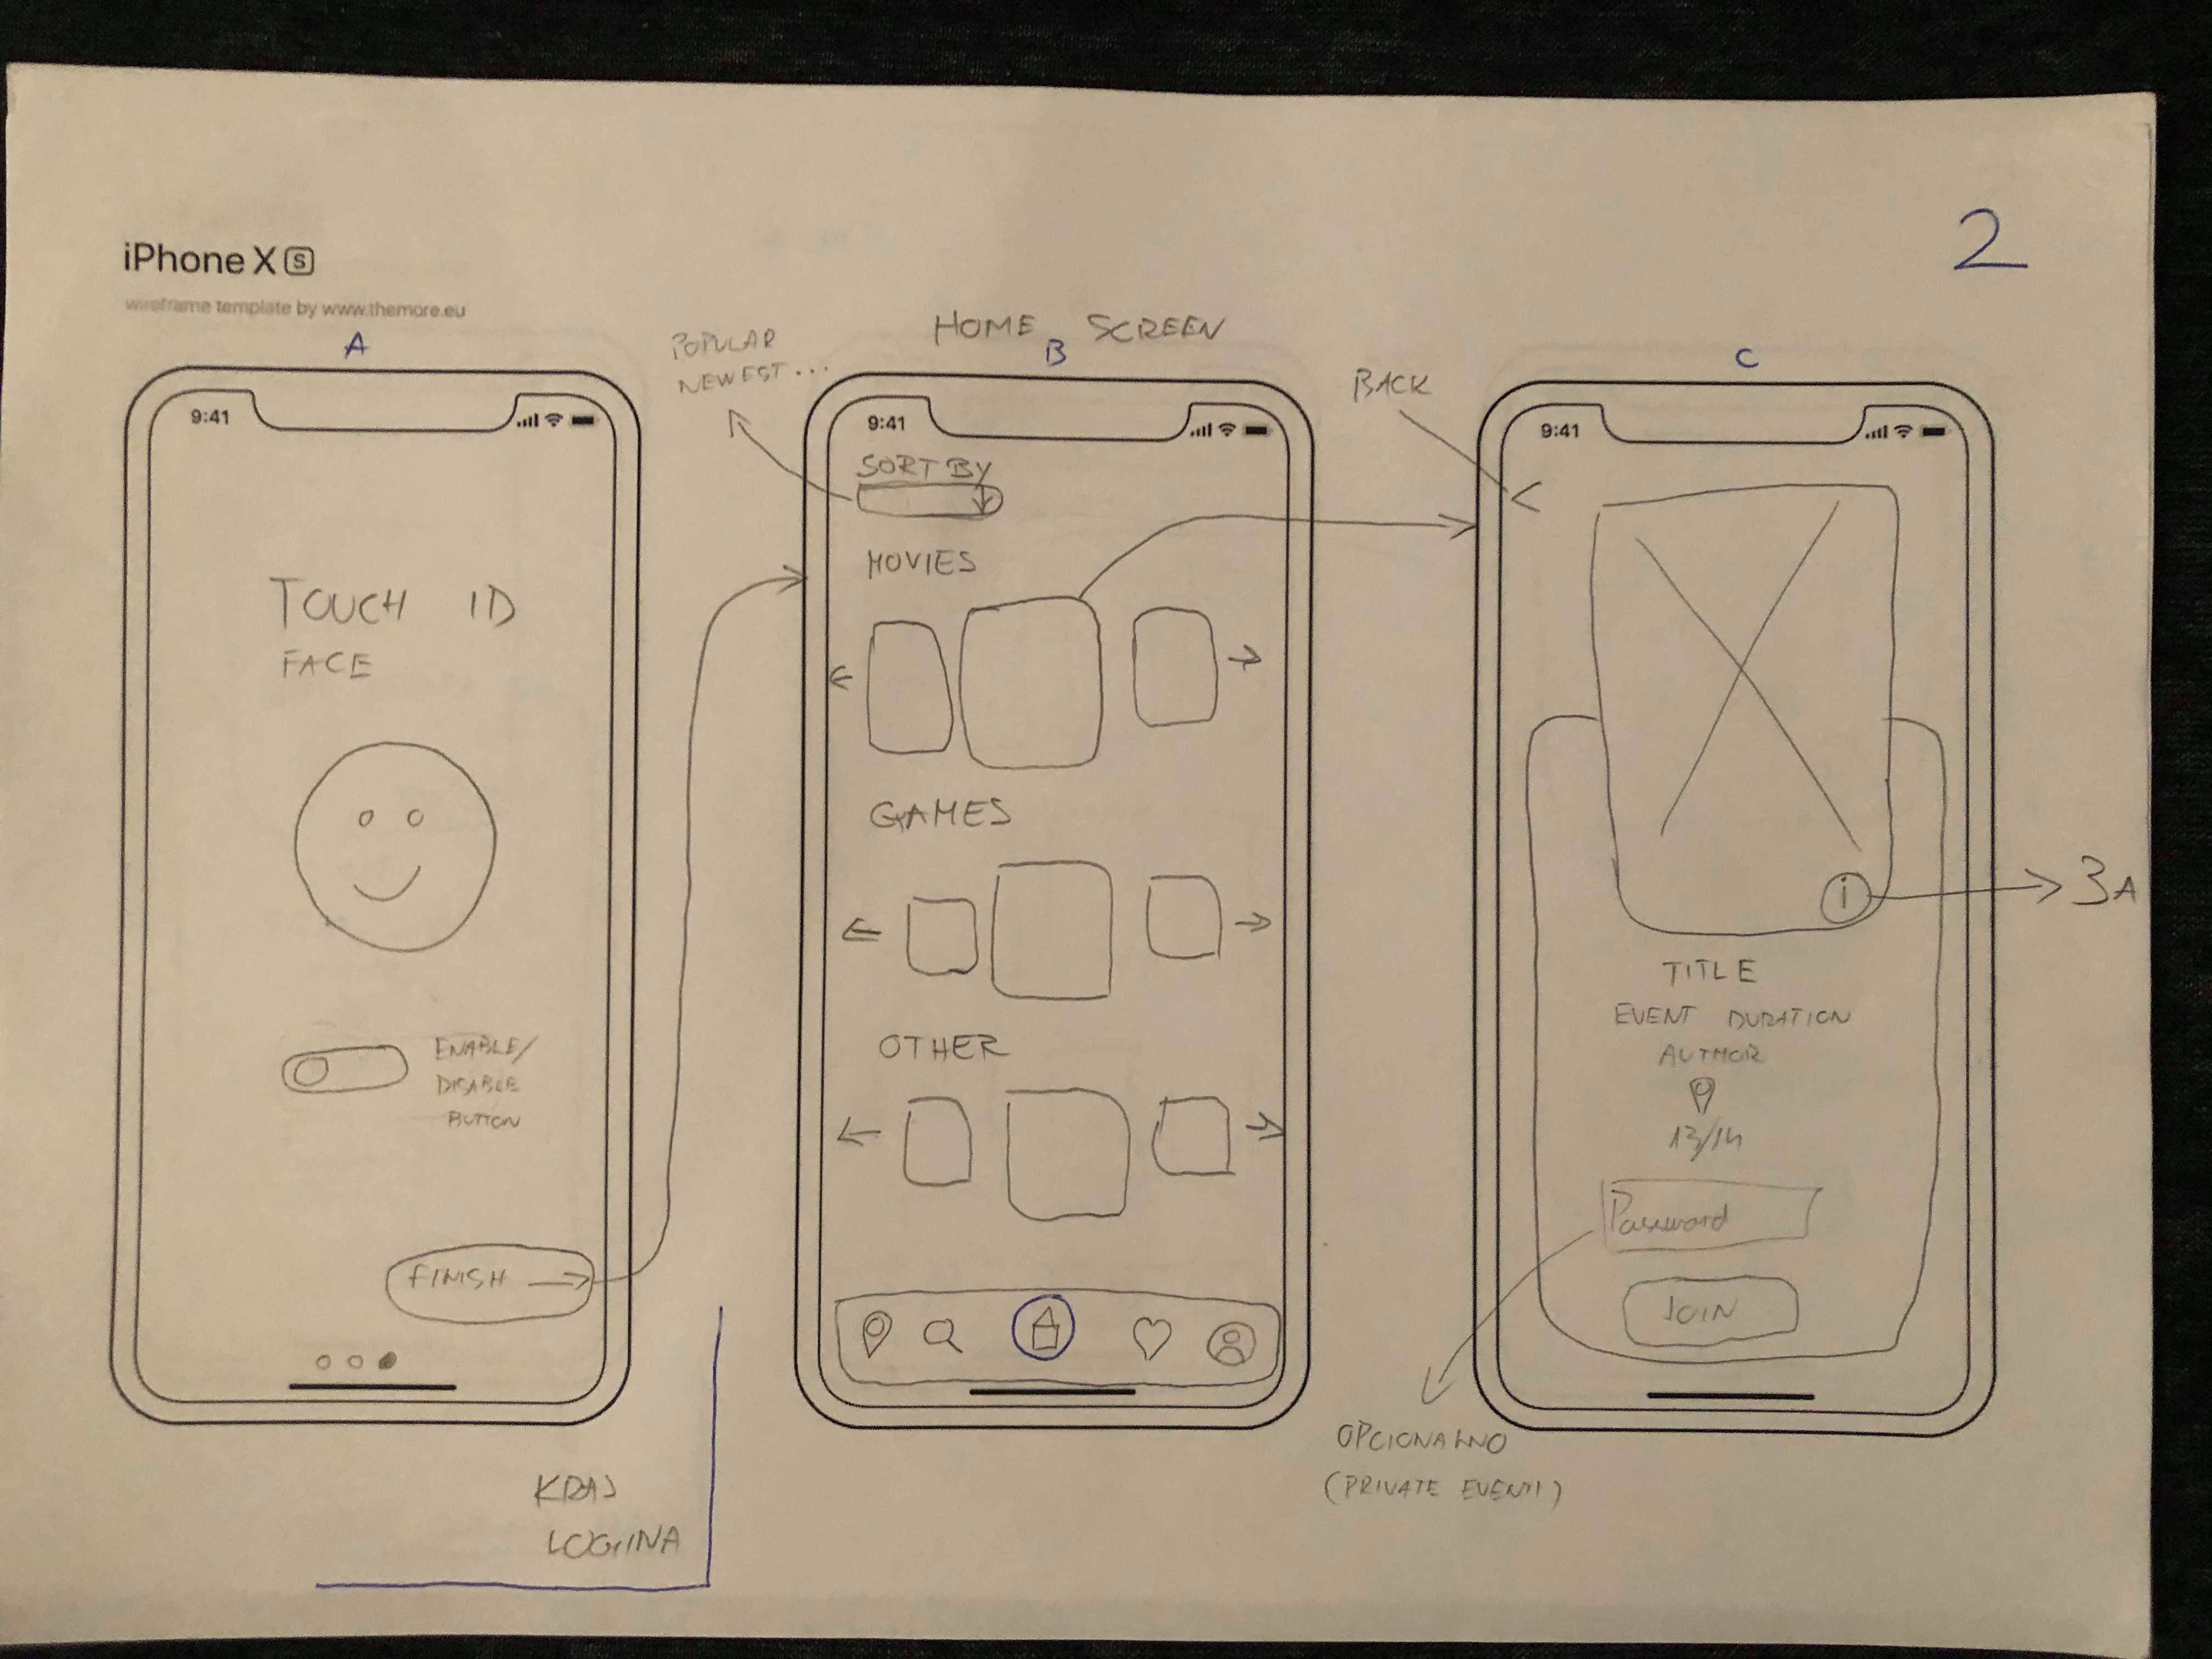 2
iPhone XS
wireframe template by www.themore.eu
A
9:41
TOUCH ID
FACE
ENABLE/
DISABLE
BUTTON
FINISH
KRAJ
LOGINA
POPULAR
NEWEST...
HOME SCREEN
B
9:41
SORT BY
MOVIES
GAMES
OTHER
BACK
C
9:41
<
i
3A
TITLE
EVENT DURATION
AUTHOR
13/14
Password
JOIN
OPCIONALNO
(PRIVATE EVENTI)